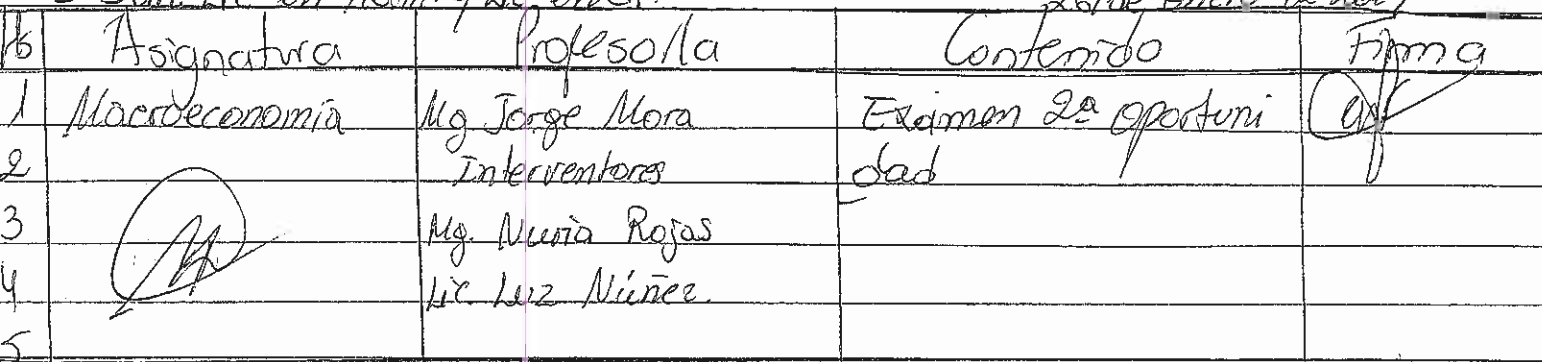 Asignatura Profesor/a Contenido Firma
1 Macroeconomía Mg Jorge Mora Examen 2ª oportuni
2 Interventores dad
3 Mg. Nuria Rojas
4 Lic. Luz Núñez.
5